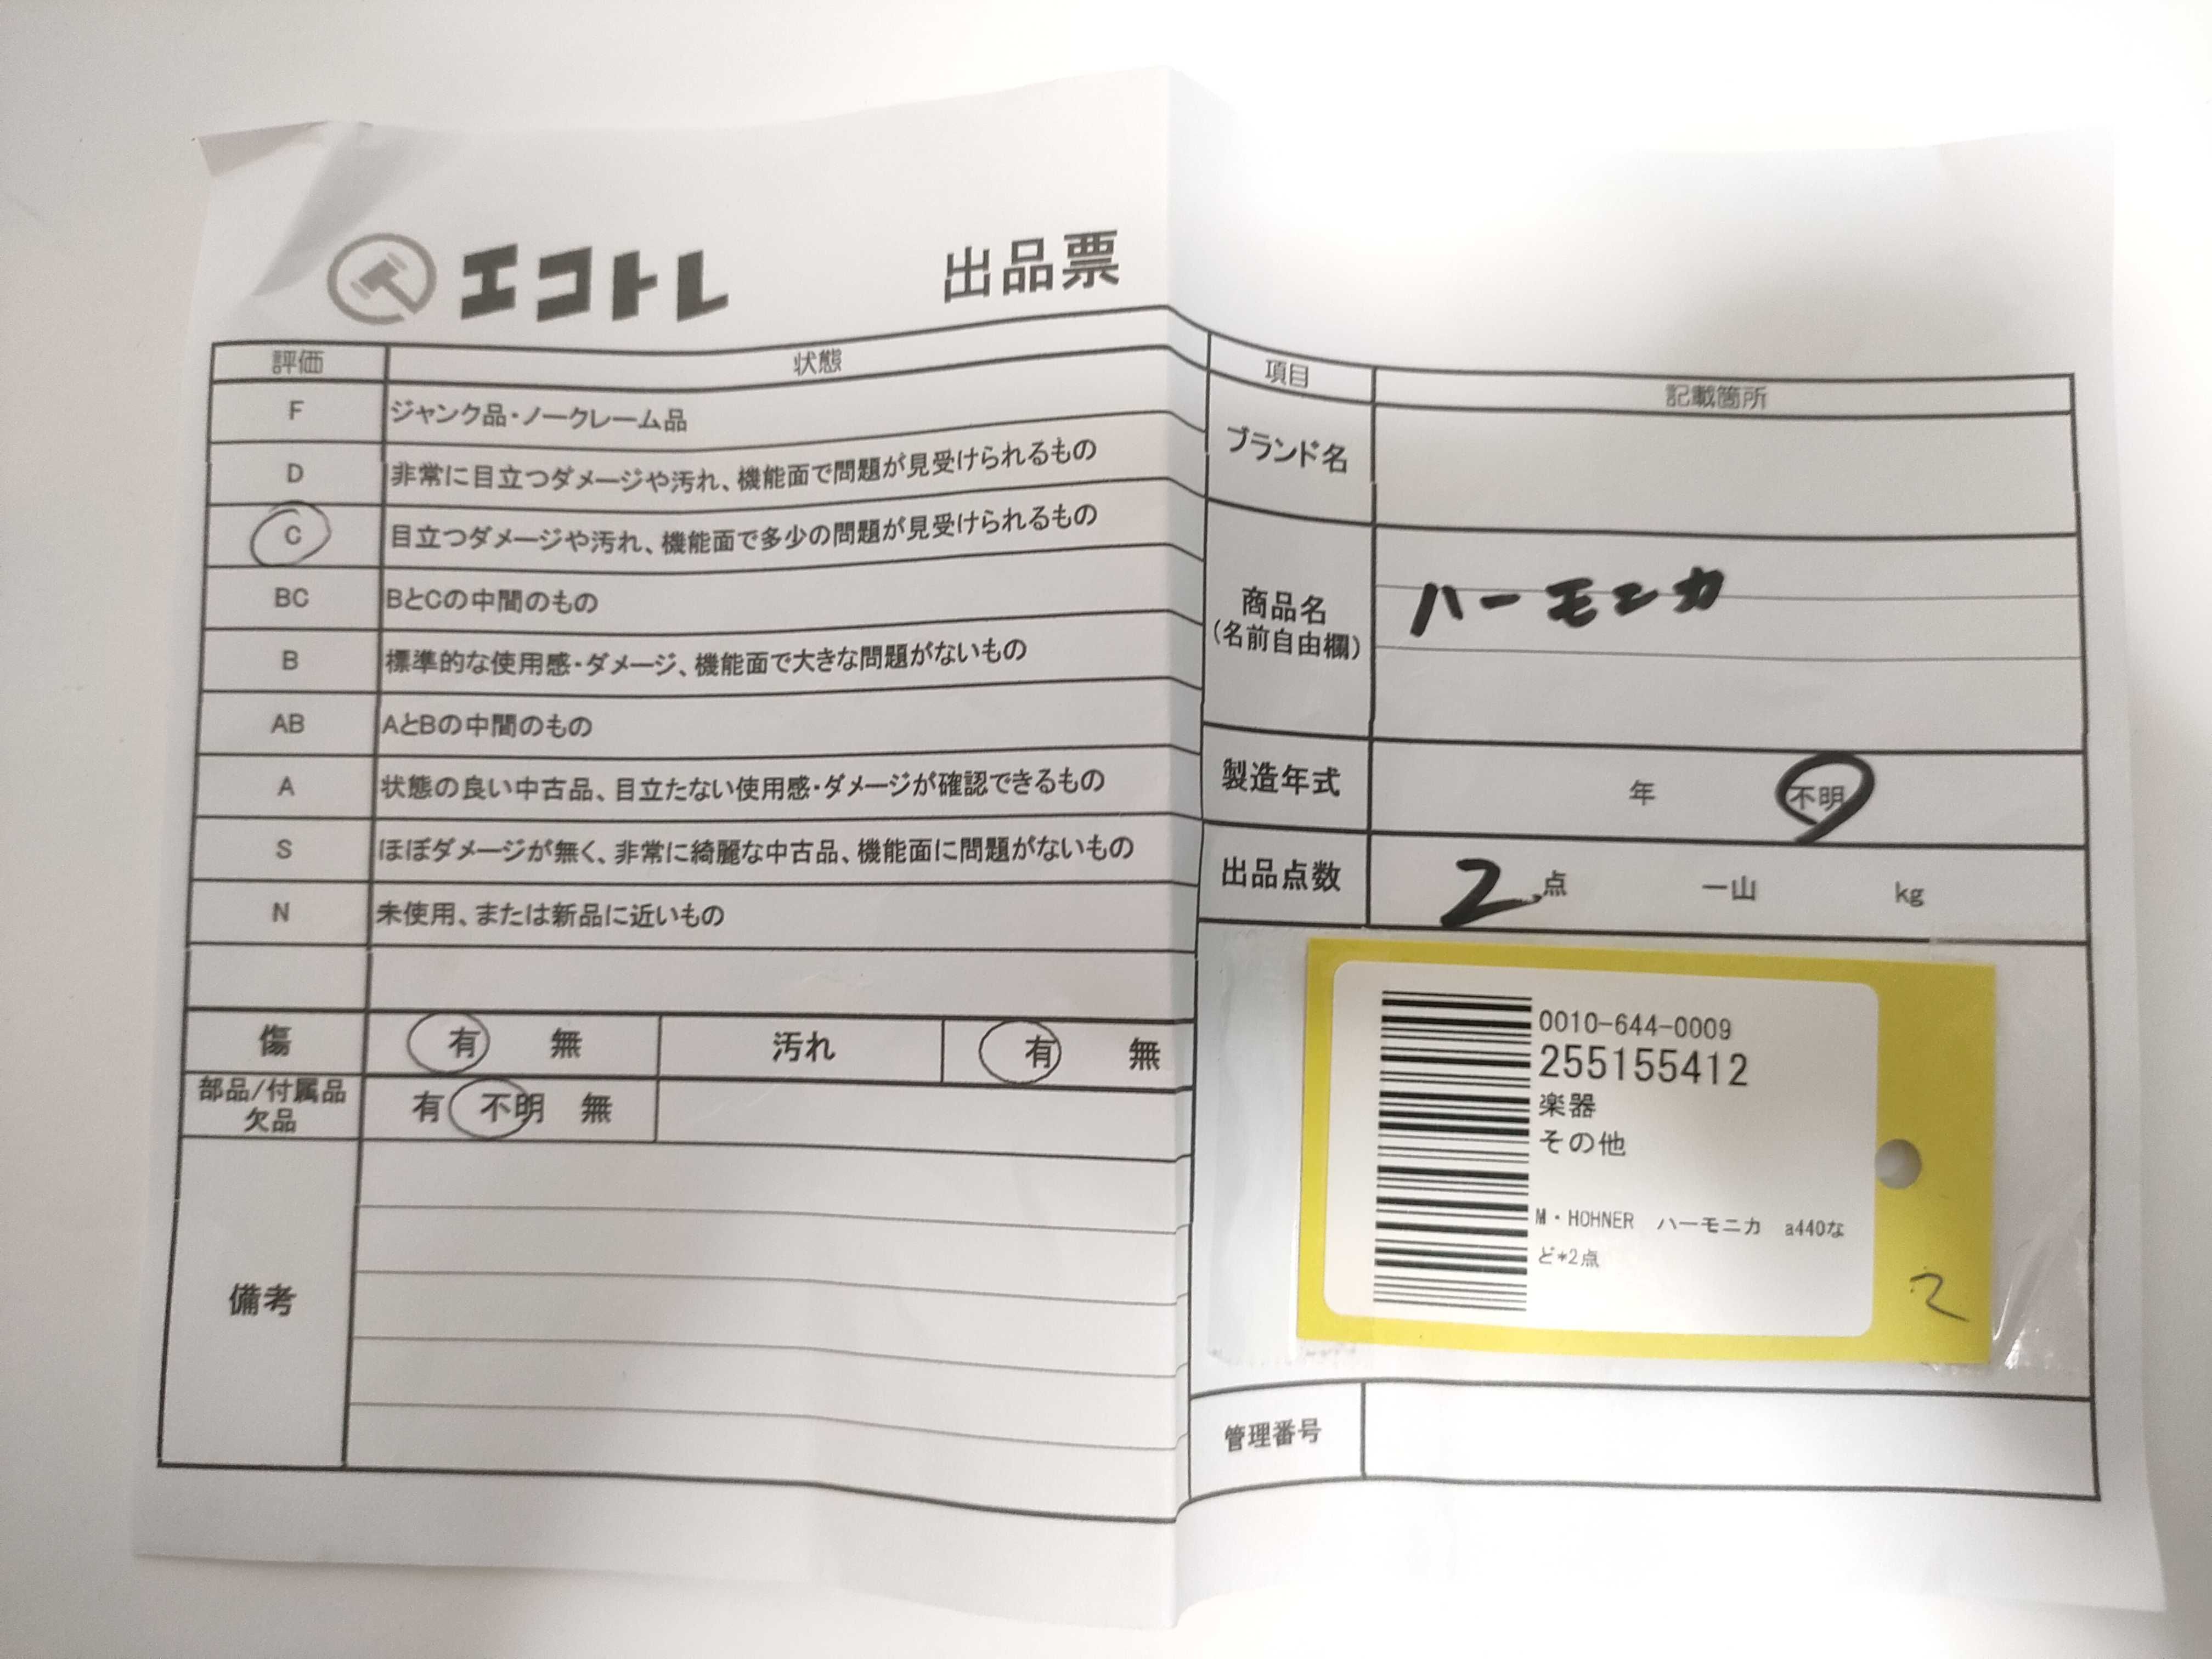 エコトレ 出品票
評価 状態
F ジャンク品・ノークレーム品
D 非常に目立つダメージや汚れ、機能面で問題が見受けられるもの
C 目立つダメージや汚れ、機能面で多少の問題が見受けられるもの
BC BとCの中間のもの
B 標準的な使用感・ダメージ、機能面で大きな問題がないもの
AB AとBの中間のもの
A 状態の良い中古品、目立たない使用感・ダメージが確認できるもの
S ほぼダメージが無く、非常に綺麗な中古品、機能面に問題がないもの
N 未使用、または新品に近いもの
傷 有 無 汚れ 有 無
部品/付属品
欠品
有 不明 無
備考
項目 記載箇所
ブランド名
商品名
(名前自由欄)
ハーモニカ
製造年式 年 不明
出品点数 2 点 一山 kg
0010-644-0009
255155412
楽器
その他
M・HOHNER ハーモニカ a440な
ど*2点
2
管理番号